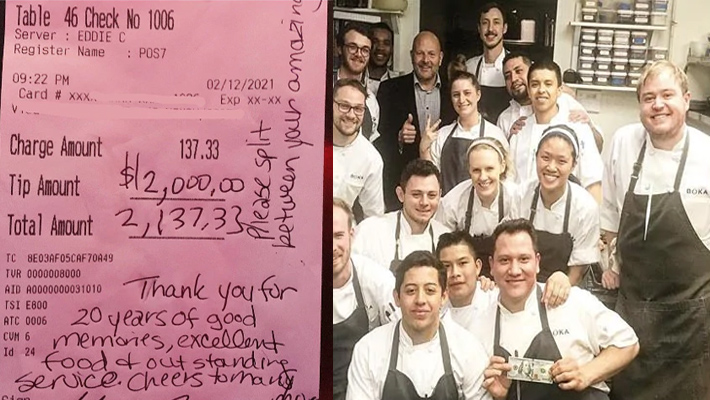 Table 46 Check No 1006
Server : EDDIE C
Register Name : POS7
09:22 PM 02/12/2021
Card # xxx. Exp xx-xx
Charge Amount 137.33
Tip Amount $2,000.00
Total Amount 2,137.33
Please split
between your amazing
TC 8E03AF05CAF70A49
TVR 0000008000
AID A0000000031010
TSI E800
ATC 0006
CVM 6
Id 24
Thank you for
20 years of good
memories, excellent
food & outstanding
service. Cheers to many
BOKA
BOKA